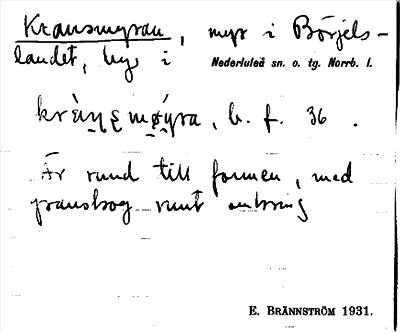 Kransmyran, myr i Börjels-
landet, bys i Nederluleå sn. o. tg. Norrb. l.
b. f. 36.
Är rund till formen, med
granskog runt omkring
E. BRÄNNSTRÖM 1931.